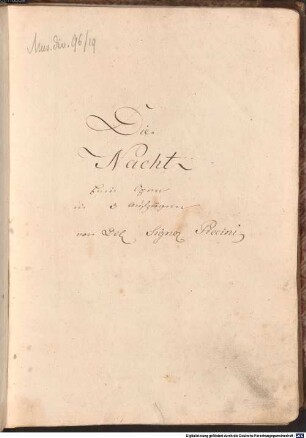 Mus. div. 96/19
Die
Nacht
Eine Oper
in 3 Aufzügen
von Del Signor Piccini
Digitalisierung gefördert durch die Deutsche Forschungsgemeinschaft